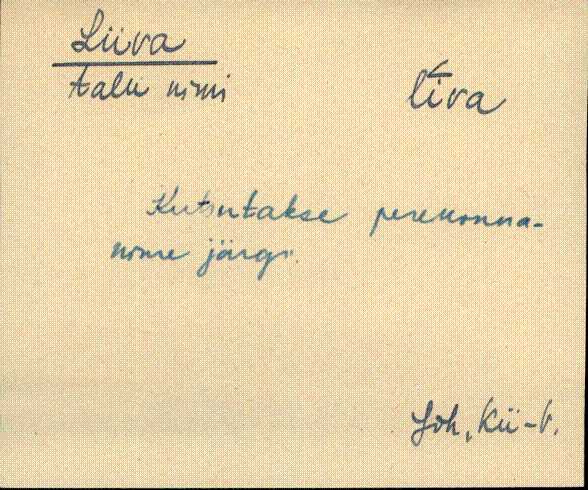 Liiva
talu nimi
līva
Kutsutakse perekonna-
nime järgi.
Joh, Kii-V.